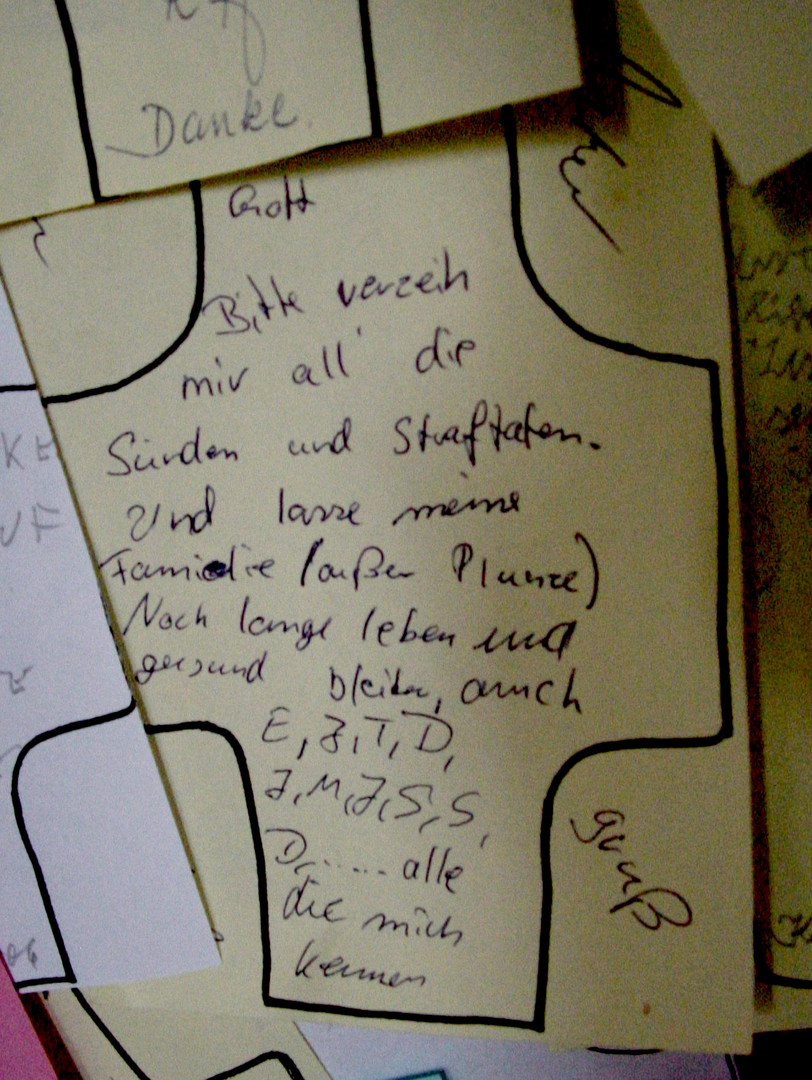 Danke.
Gott
Bitte verzeih
mir all' die
Sünden und Straftaten.
Und lasse meine
Familie (außer Plunze)
Noch lange leben und
gesund bleiben, auch
E, J, T, D,
J, M, J, S, S,
D, ..... alle
die mich
kennen
Gruß